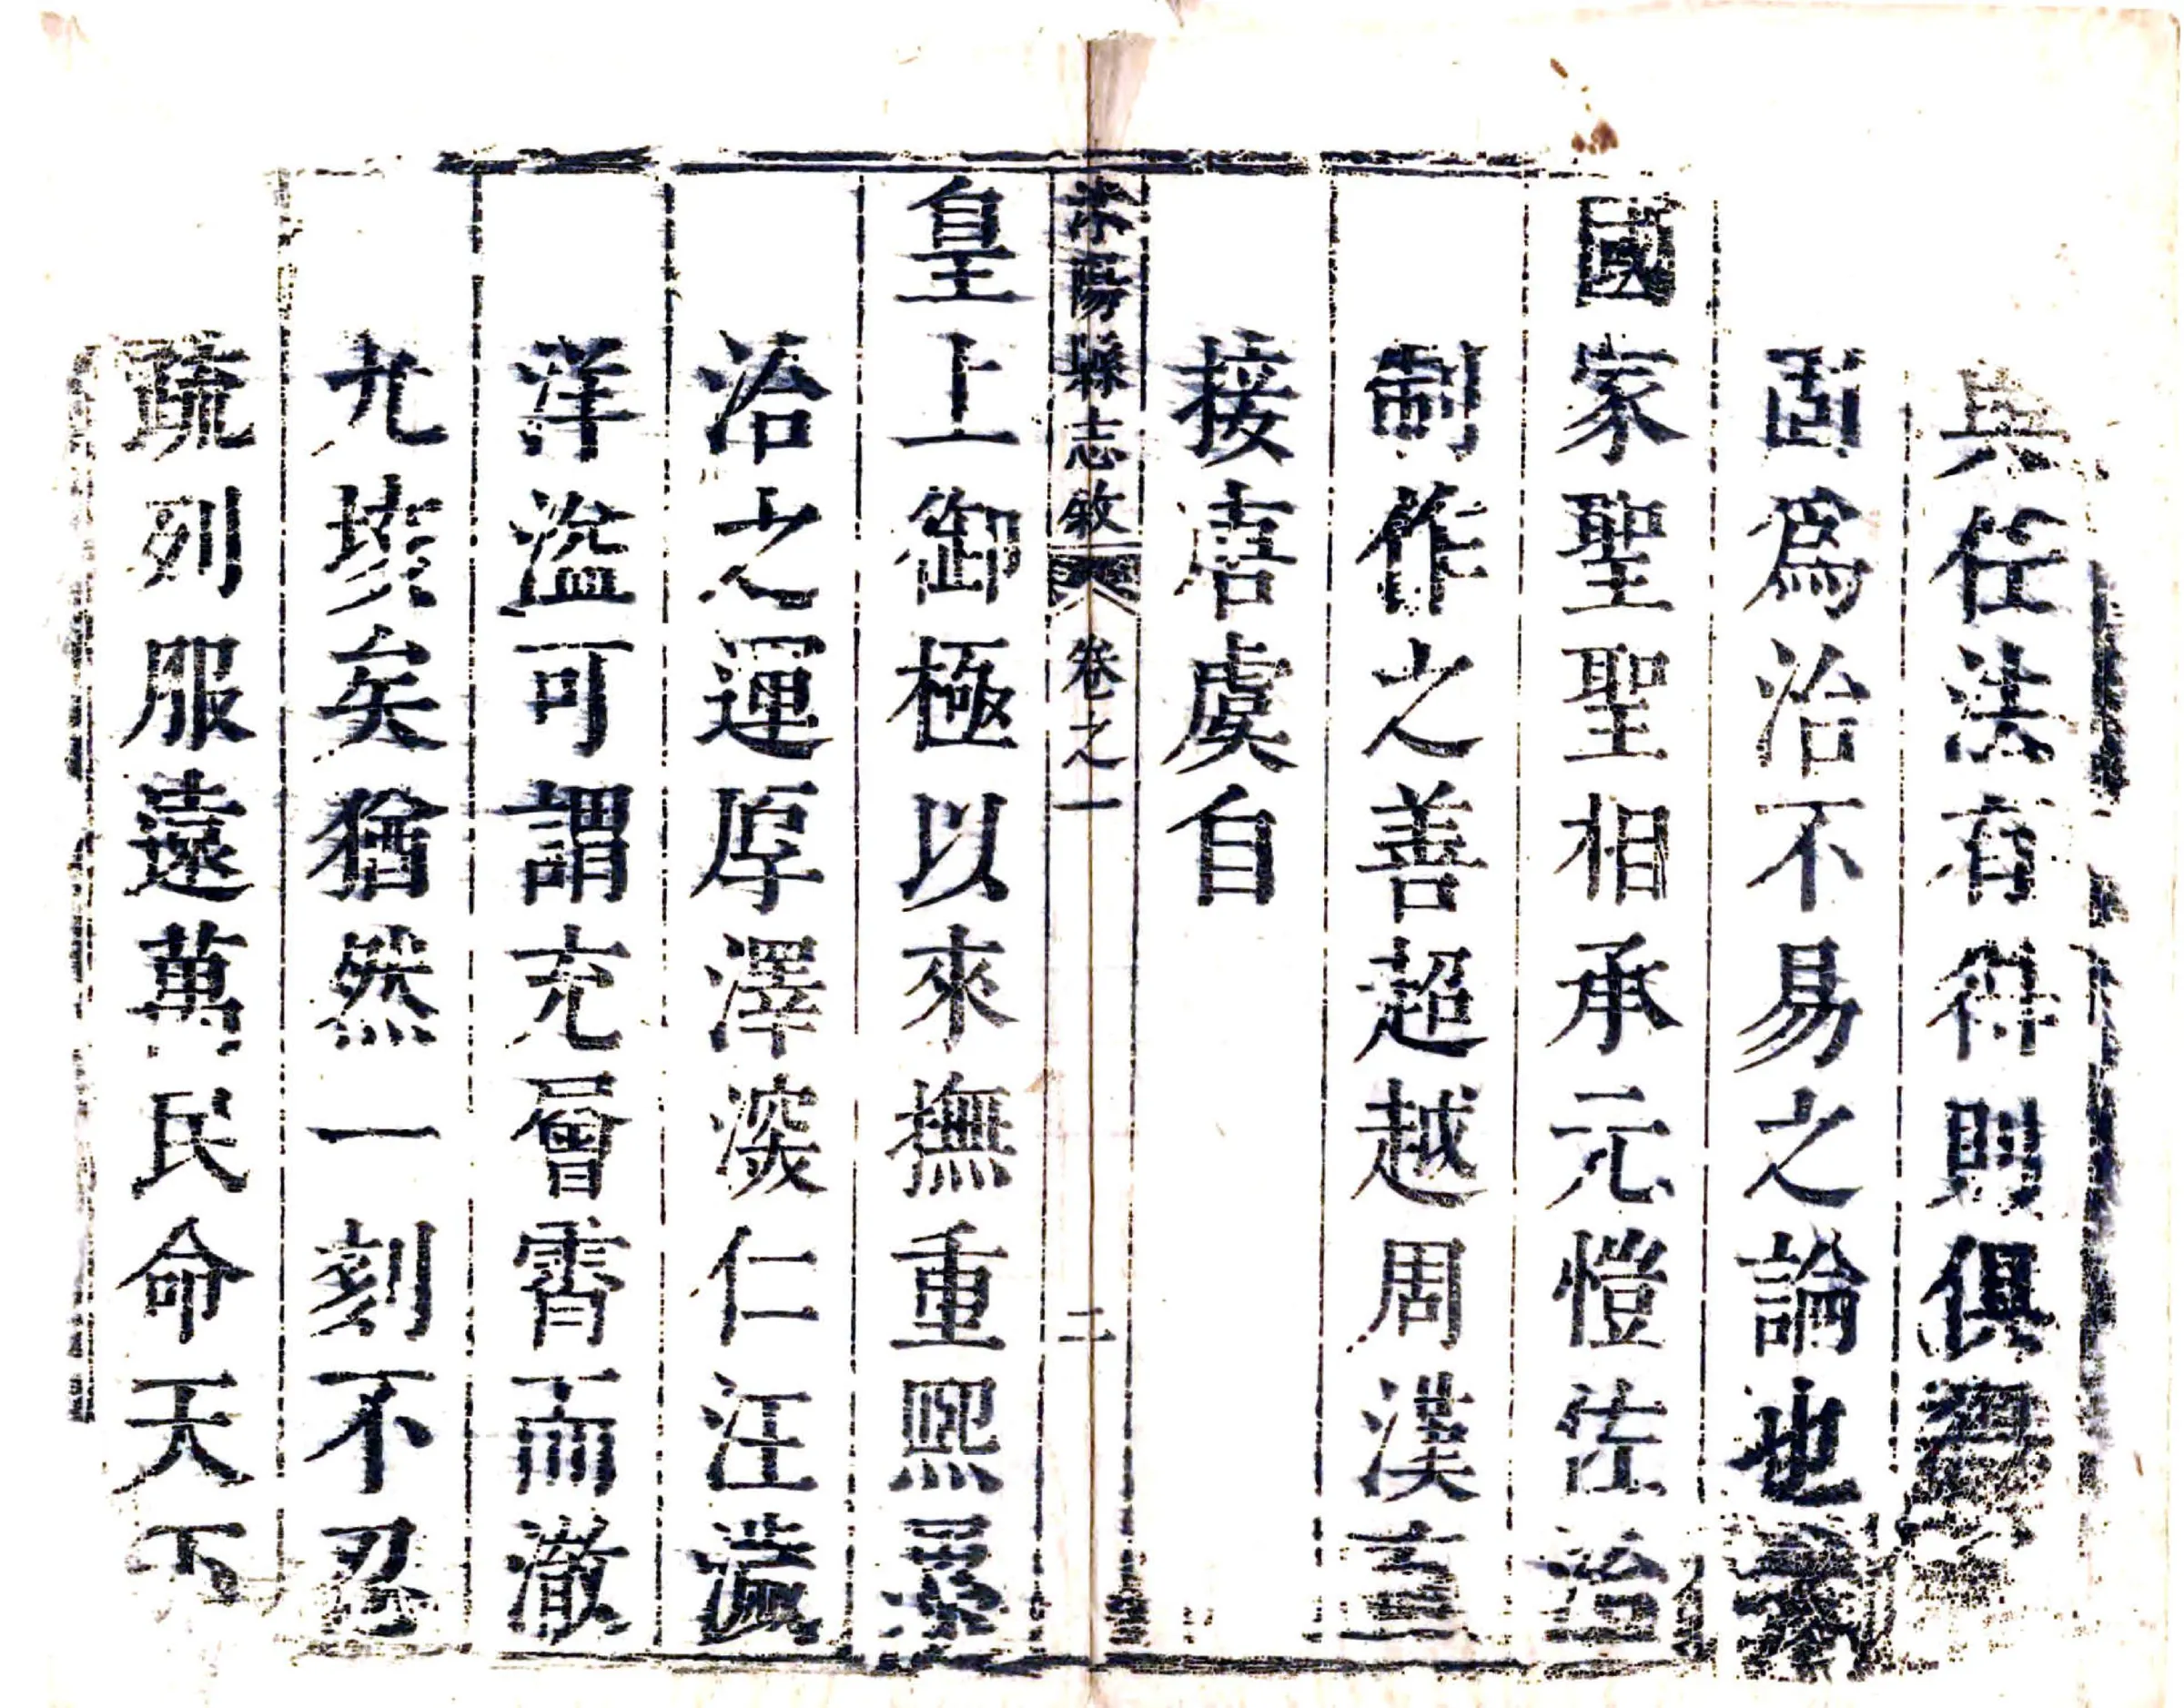 與任法有待則俱
固爲治不易之論也
國家聖聖相承元愷佐治
制作之善超越周漢直
接唐虞自
耒陽縣志敘 卷之一 二
皇上御極以來撫重熙累
洽之運厚澤深仁汪濊
洋溢可謂充層霄而澈
九垓矣猶然一刻不忍
疏列服遠萬民命天下